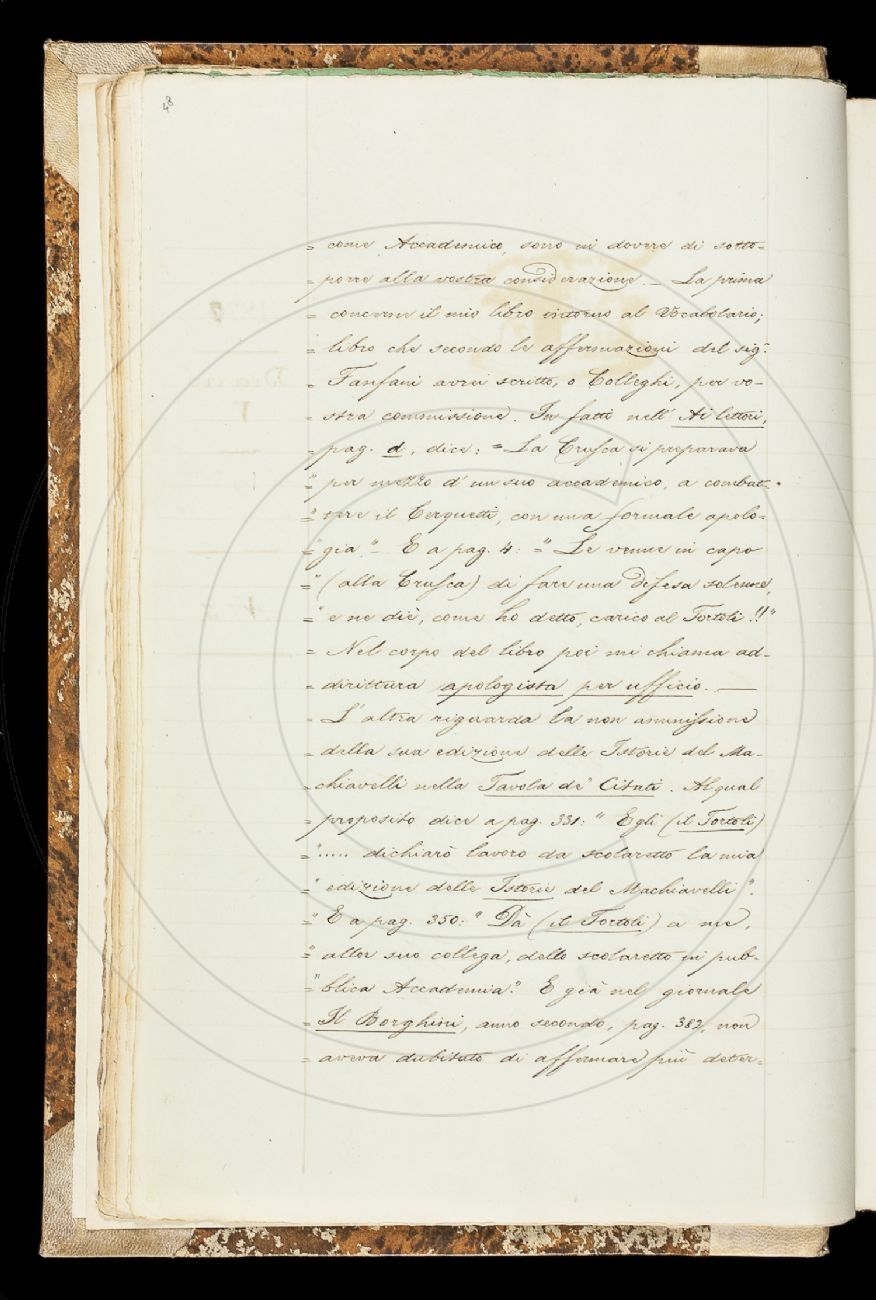 48
= come Accademico, sono in dovere di sotto-
= porre alla vostra considerazione. _ La prima
= concerne il mio libro intorno al Vocabolario;
= libro che secondo le affermazioni del sig.r
= Fanfani avrei scritto, o Colleghi, per vo-
= stra commissione. In fatti nell' Ai lettori,
= pag. d, dice: = La Crusca si preparava
=" per mezzo d' un suo accademico, a combat-
=" tere il Cerquetti, con una formale apolo-
=" gia." _ E a pag. 4: =" Le venne in capo
=" (alla Crusca) di fare una difesa solenne,
=" e ne diè, come ho detto, carico al Tortoli!!"
= Nel corpo del libro poi mi chiama ad-
= dirittura apologista per ufficio. _
= L' altra riguarda la non ammissione
= della sua edizione delle Istorie del Ma-
= chiavelli nella Tavola de' Citati. Al qual
= proposito dice a pag. 331: " Egli (il Tortoli)
=" ..... dichiarò lavoro da scolaretto la mia
=" edizione delle Istorie del Machiavelli".
=" E a pag. 350: " Dà (il Tortoli) a me,
=" allor suo collega, dello scolaretto in pub-
=" blica Accademia." E già nel giornale
= Il Borghini, anno secondo, pag. 382, non
= aveva dubitato di affermare più deter-